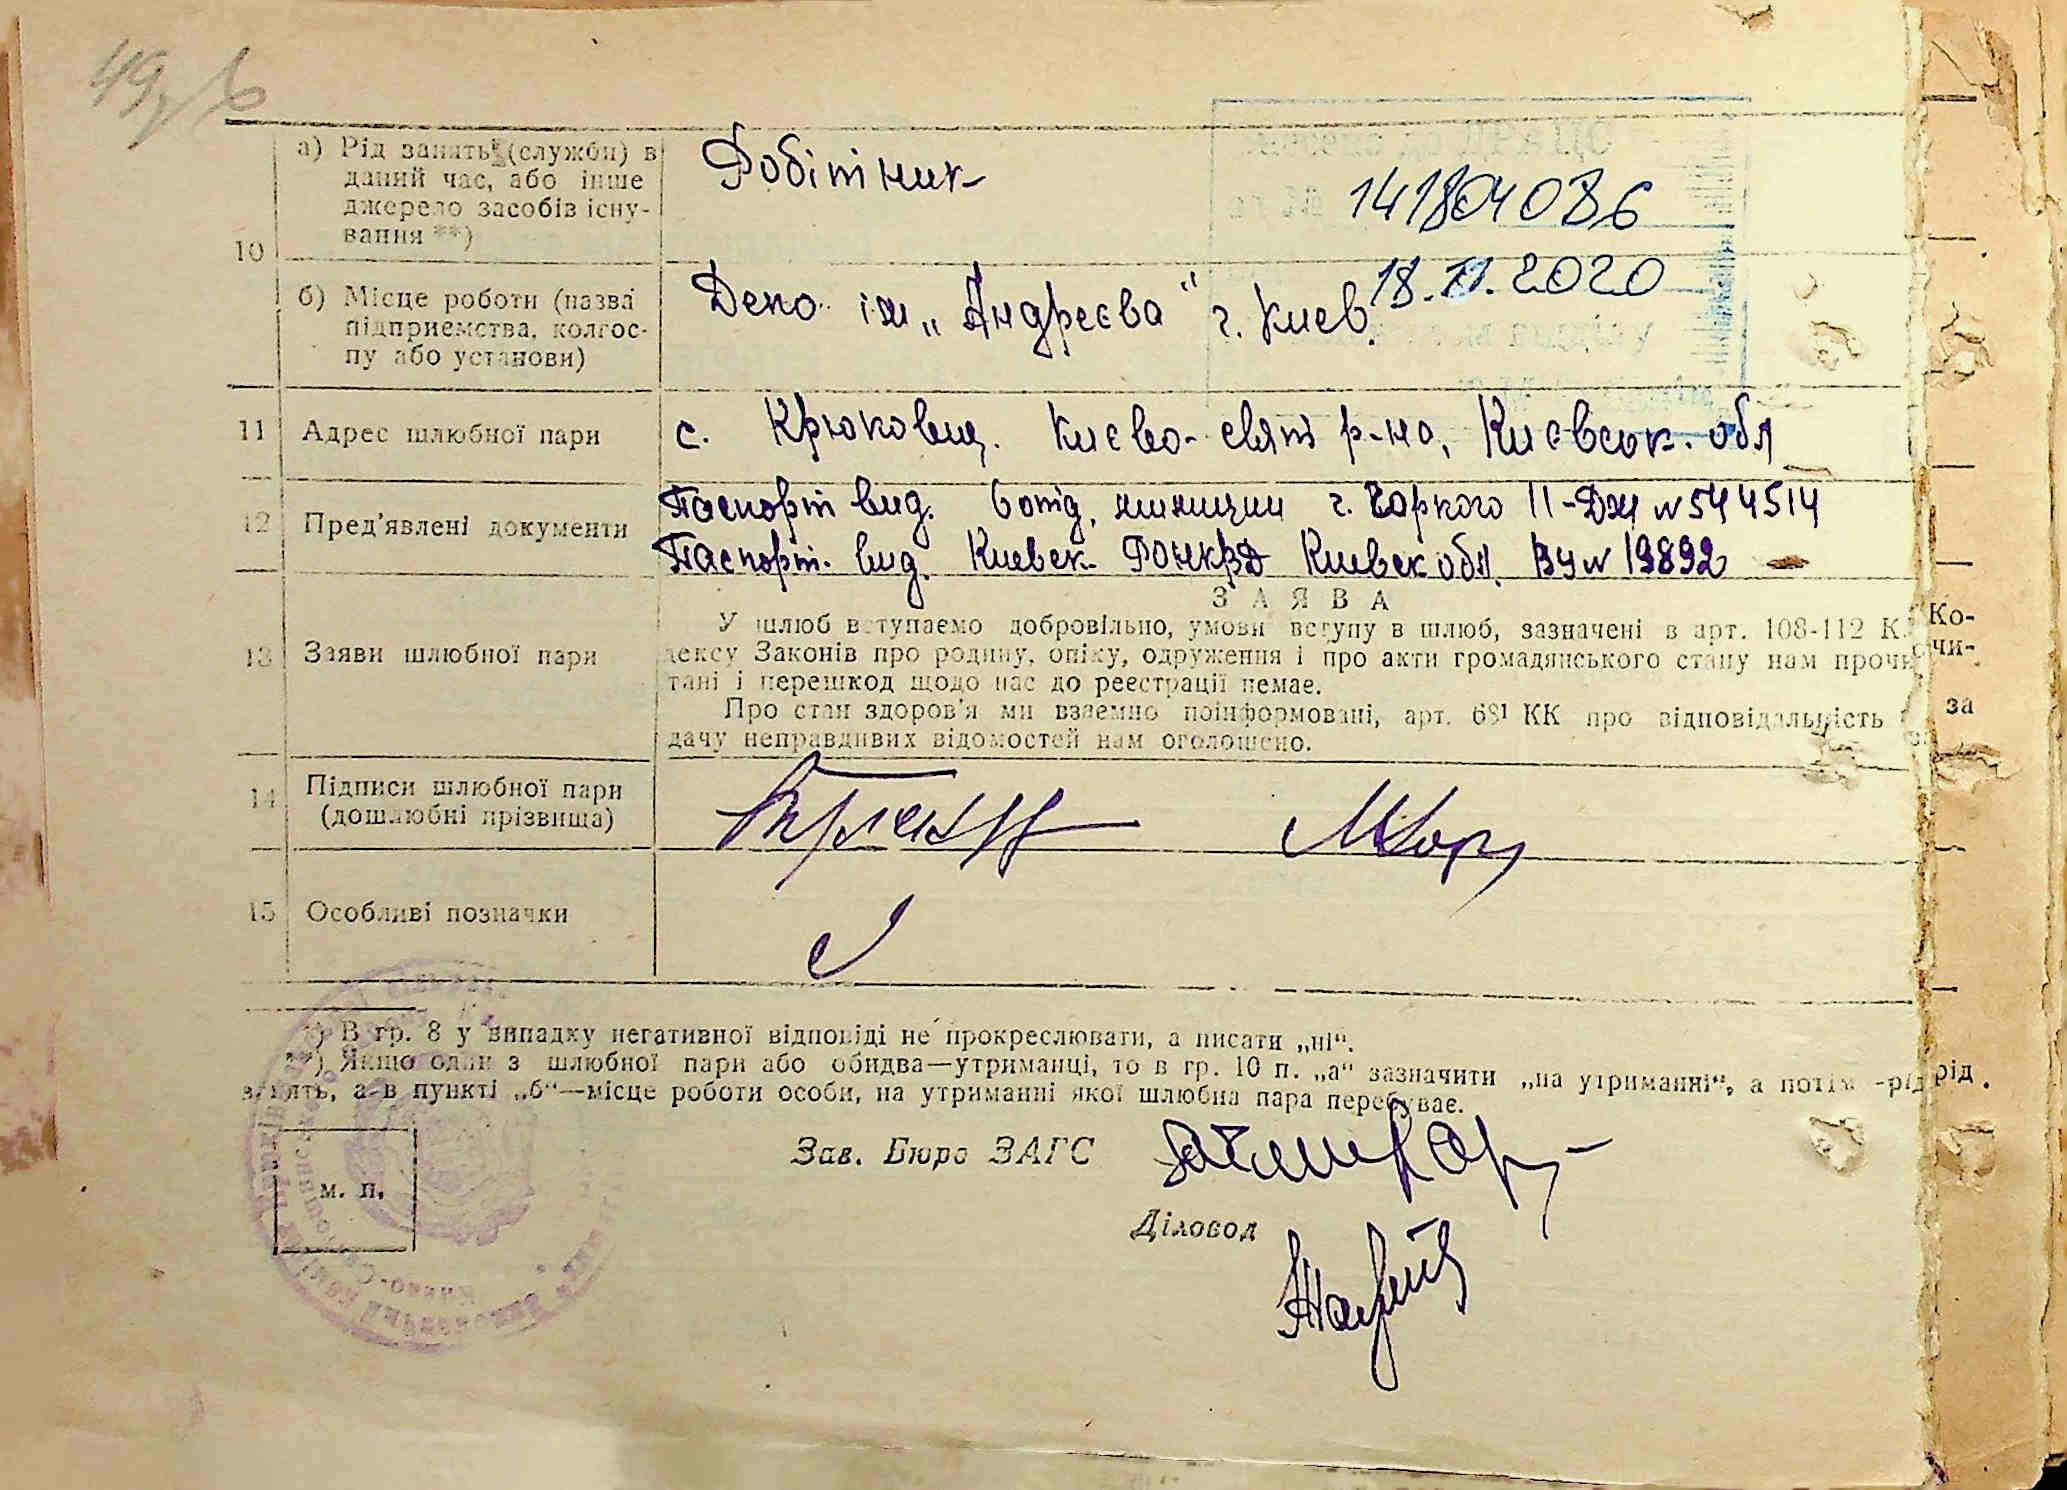 49
а) Рід занять (служби) в
даний час, або інше
джерело засобів існу-
вання **)
Робітник
141804086
10
б) Місце роботи (назва
підприємства, колгос-
пу або установи)
Депо ім „Андреєва" г. Киев.
18.11.2020
11 Адрес шлюбної пари
с. Крюковщ. Києво-свят р-на, Києвськ. обл
12 Пред'явлені документи
Паспорт вид. 6 отд. милиции г. Горкого II-ДЖ № 544514
Паспорт. вид. Киевск Киевск обл. № 19892
ЗАЯВА
13 Заяви шлюбної пари
У шлюб вступаємо добровільно, умови вступу в шлюб, зазначені в арт. 108-112 К
дексу Законів про родину, опіку, одруження і про акти громадянського стану нам проч
тані і перешкод щодо нас до реєстрації немає.
Про стан здоров'я ми взаємно поінформовані, арт. 68¹ КК про відповідальність
дачу неправдивих відомостей нам оголошено.
Ко-
чи-
за
14 Підписи шлюбної пари
(дошлюбні прізвища)
15 Особливі позначки
*) В гр. 8 у випадку негативної відповіді не прокреслювати, а писати „ні".
**) Якщо один з шлюбної пари або обидва—утриманці, то в гр. 10 п. „а" зазначити „на утриманні", а потім -рід
рід
занять, а в пункті „б"—місце роботи особи, на утриманні якої шлюбна пара перебуває.
Зав. Бюро ЗАГС
м. п.
Діловод